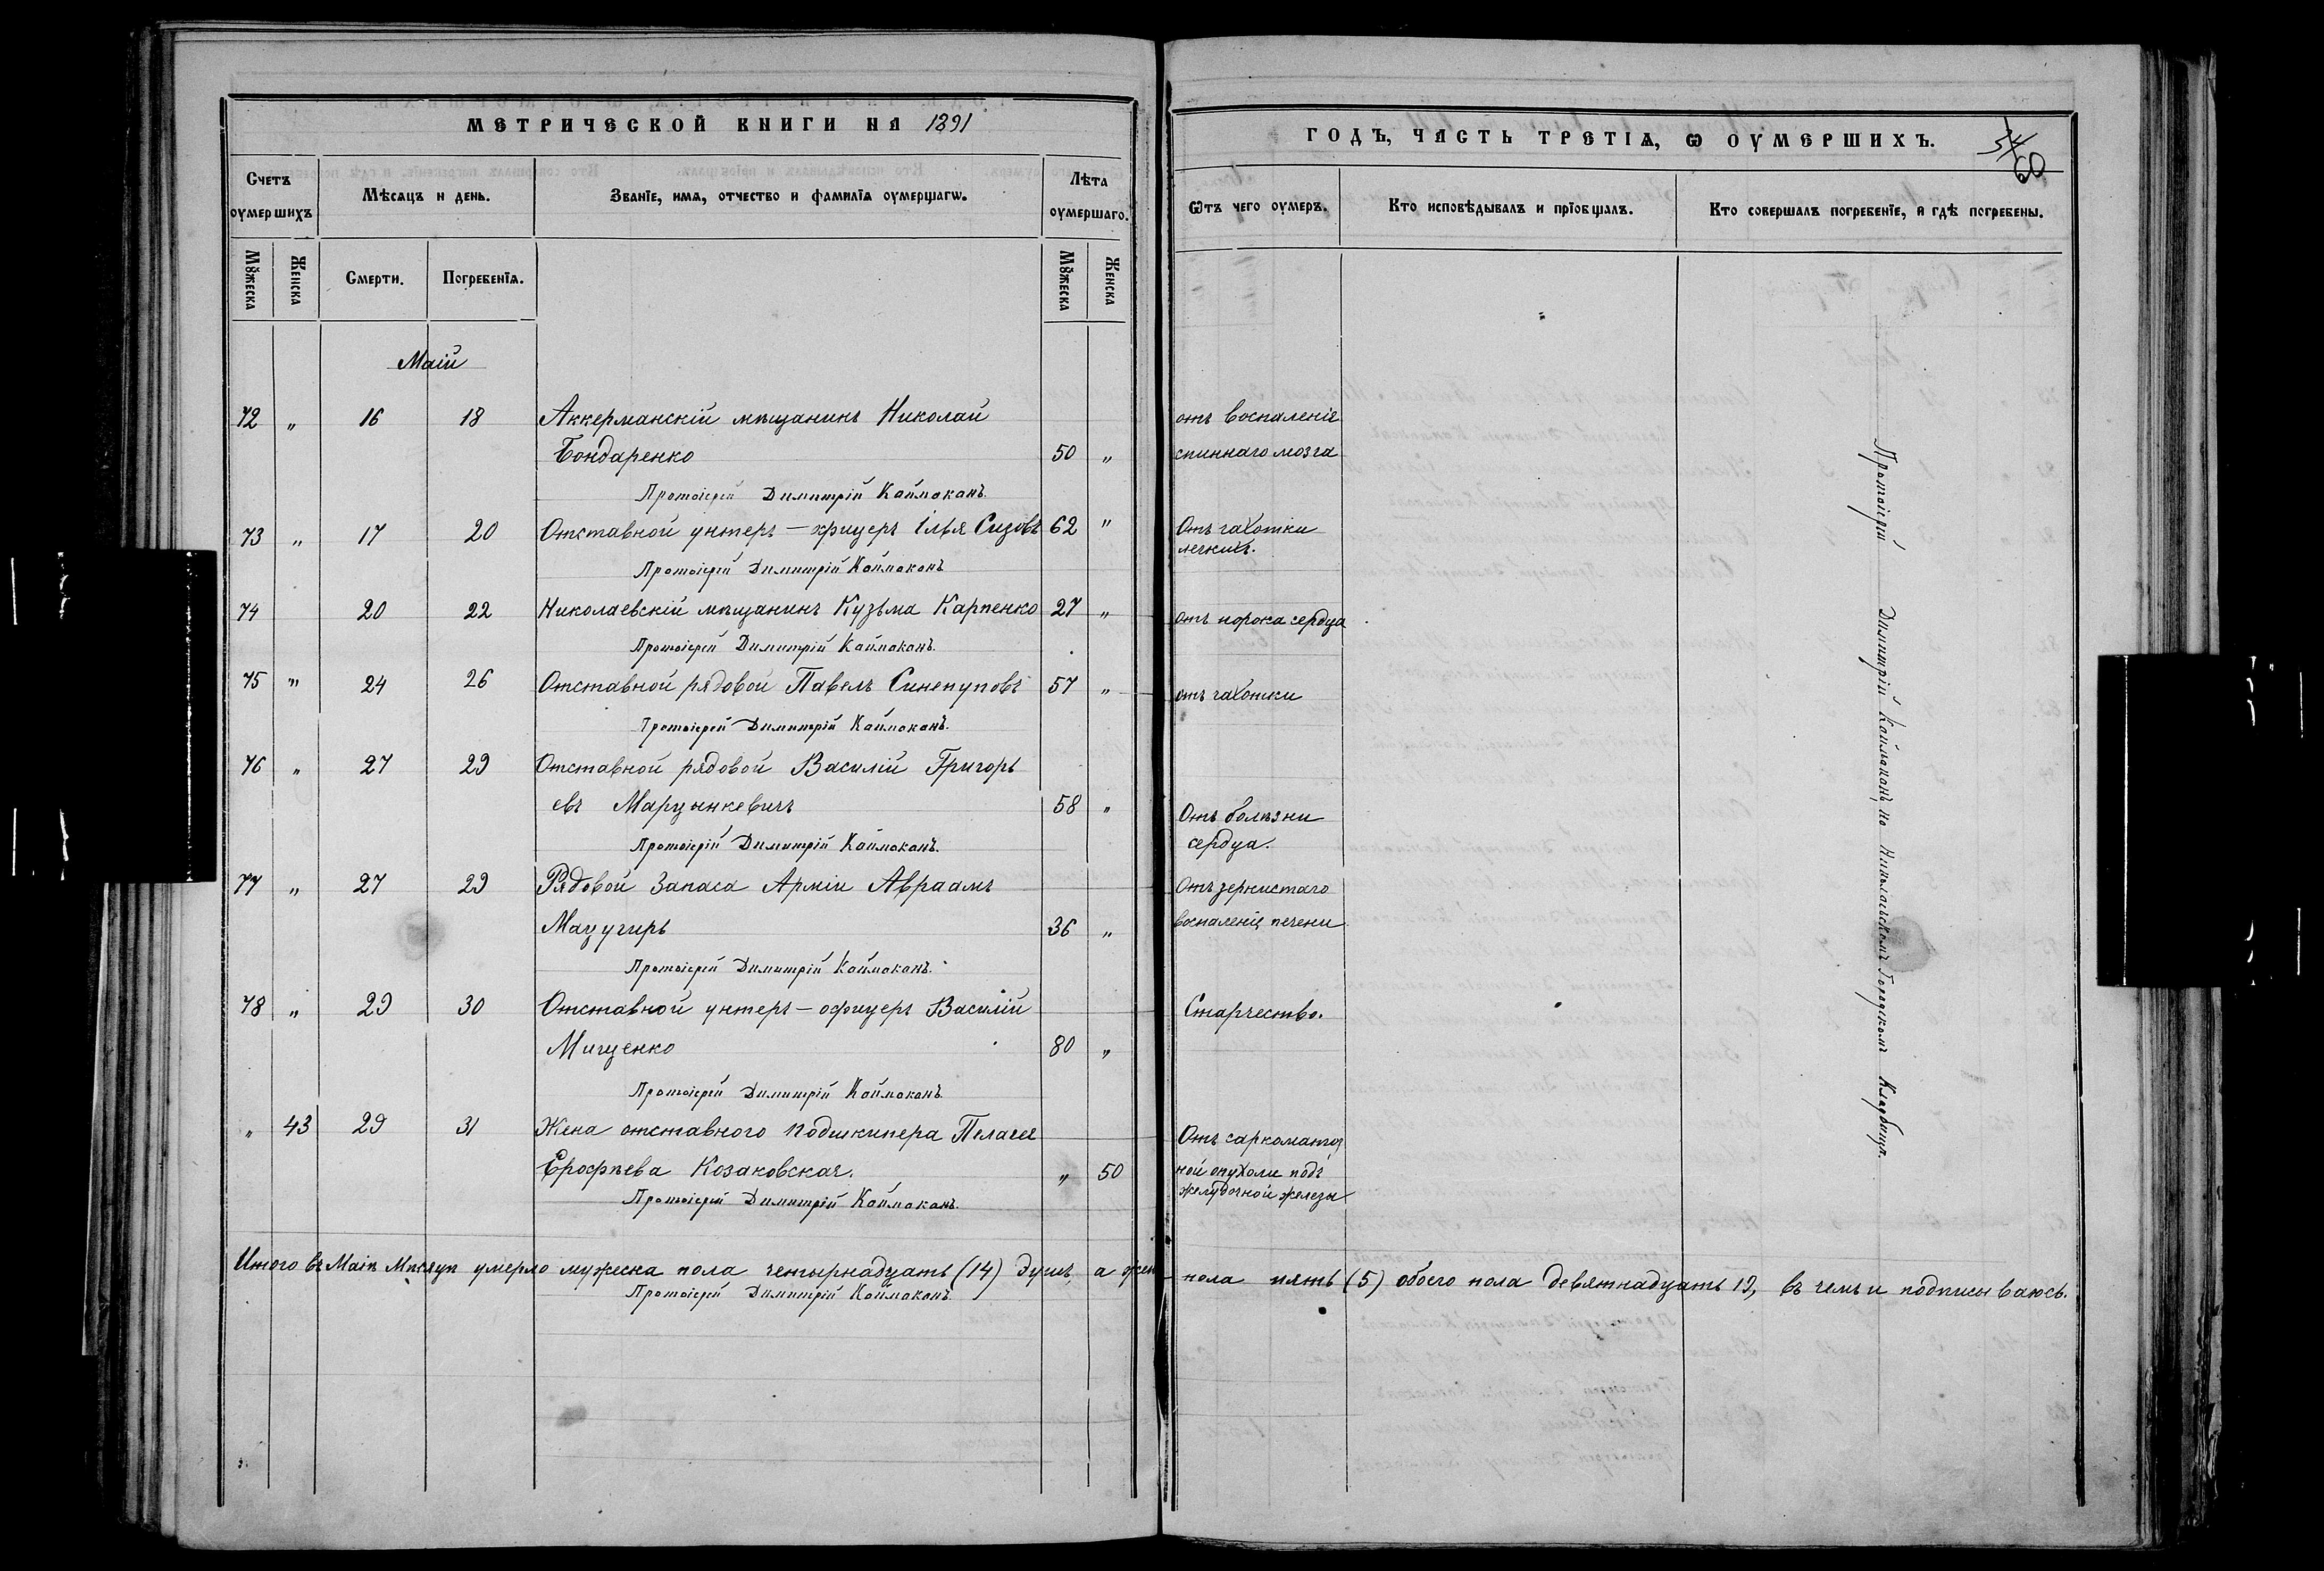 МЕТРИЧЕСКОЙ КНИГИ НА 1891
Счетъ оумершихъ
Мѣсяцъ и день.
Званїе, имя, отчество и фамилїя оумершагѡ.
Лѣта оумершаго.
Мꙋжеска
Женска
Смерти.
Погребенїя.
Мꙋжеска
Женска
Маій
72 " 16 18 Аккерманскій мѣщанинъ Николай
Бондаренко 50 "
Протоіерей Димитрій Каймаканъ.
73 " 17 20 Отставной унтеръ-офицеръ Ілья Сизовъ 62 "
Протоіерей Димитрій Каймаканъ
74 20 22 Николаевскій мѣщанинъ Кузьма Карпенко 27 "
Протоіерей Димитрій Каймаканъ.
75 " 24 26 Отставной рядовой Павелъ Синепуповъ 57 "
Протоіерей Димитрій Каймаканъ.
76 " 27 29 Отставной рядовой Василій Григорь
евъ Марцынкевичъ 58 "
Протоіерій Димитрій Каймаканъ.
77 " 27 29 Рядовой Запаса Арміи Авраамъ
Мацугиръ 36 "
Протоіерей Димитрій Каймаканъ.
78 " 29 30 Отставной унтеръ-офицеръ Василій
Мищенко 80 "
Протоіерей Димитрій Каймаканъ.
" 43 29 31 Жена отставного подшкипера Пелагея
Ерофѣева Козаковская. " 50
Протоіерей Димитрій Каймаканъ.
Итого въ Маіѣ Мѣсяцѣ умерло мужеска пола четырнадцать (14) душъ, а жен
Протоіерей Димитрій Каймаканъ.
ГОДЪ, ЧАСТЬ ТРЕТІЯ, Ѡ ОУМЕРШИХЪ.
54
60
Ѿтъ чего оумеръ.
Кто исповѣдывалъ и прїобщалъ.
Кто совершалъ погребенїе, и гдѣ погребены.
отъ воспаленія
спиннаго мозга
Отъ чахотки
легкихъ.
отъ порока сердца
отъ чахотки
Отъ болѣзни
сердца.
Отъ зернистаго
воспаленія печени
Старчество.
Отъ саркоматоз
ной опухоли подъ
желудочной железы
Протоіерей Димитрій Каймаканъ на Николаевскомъ Городскомъ Кладбищѣ.
пола пять (5) обоего пола девятнадцать 19, въ чемъ и подписываюсь.